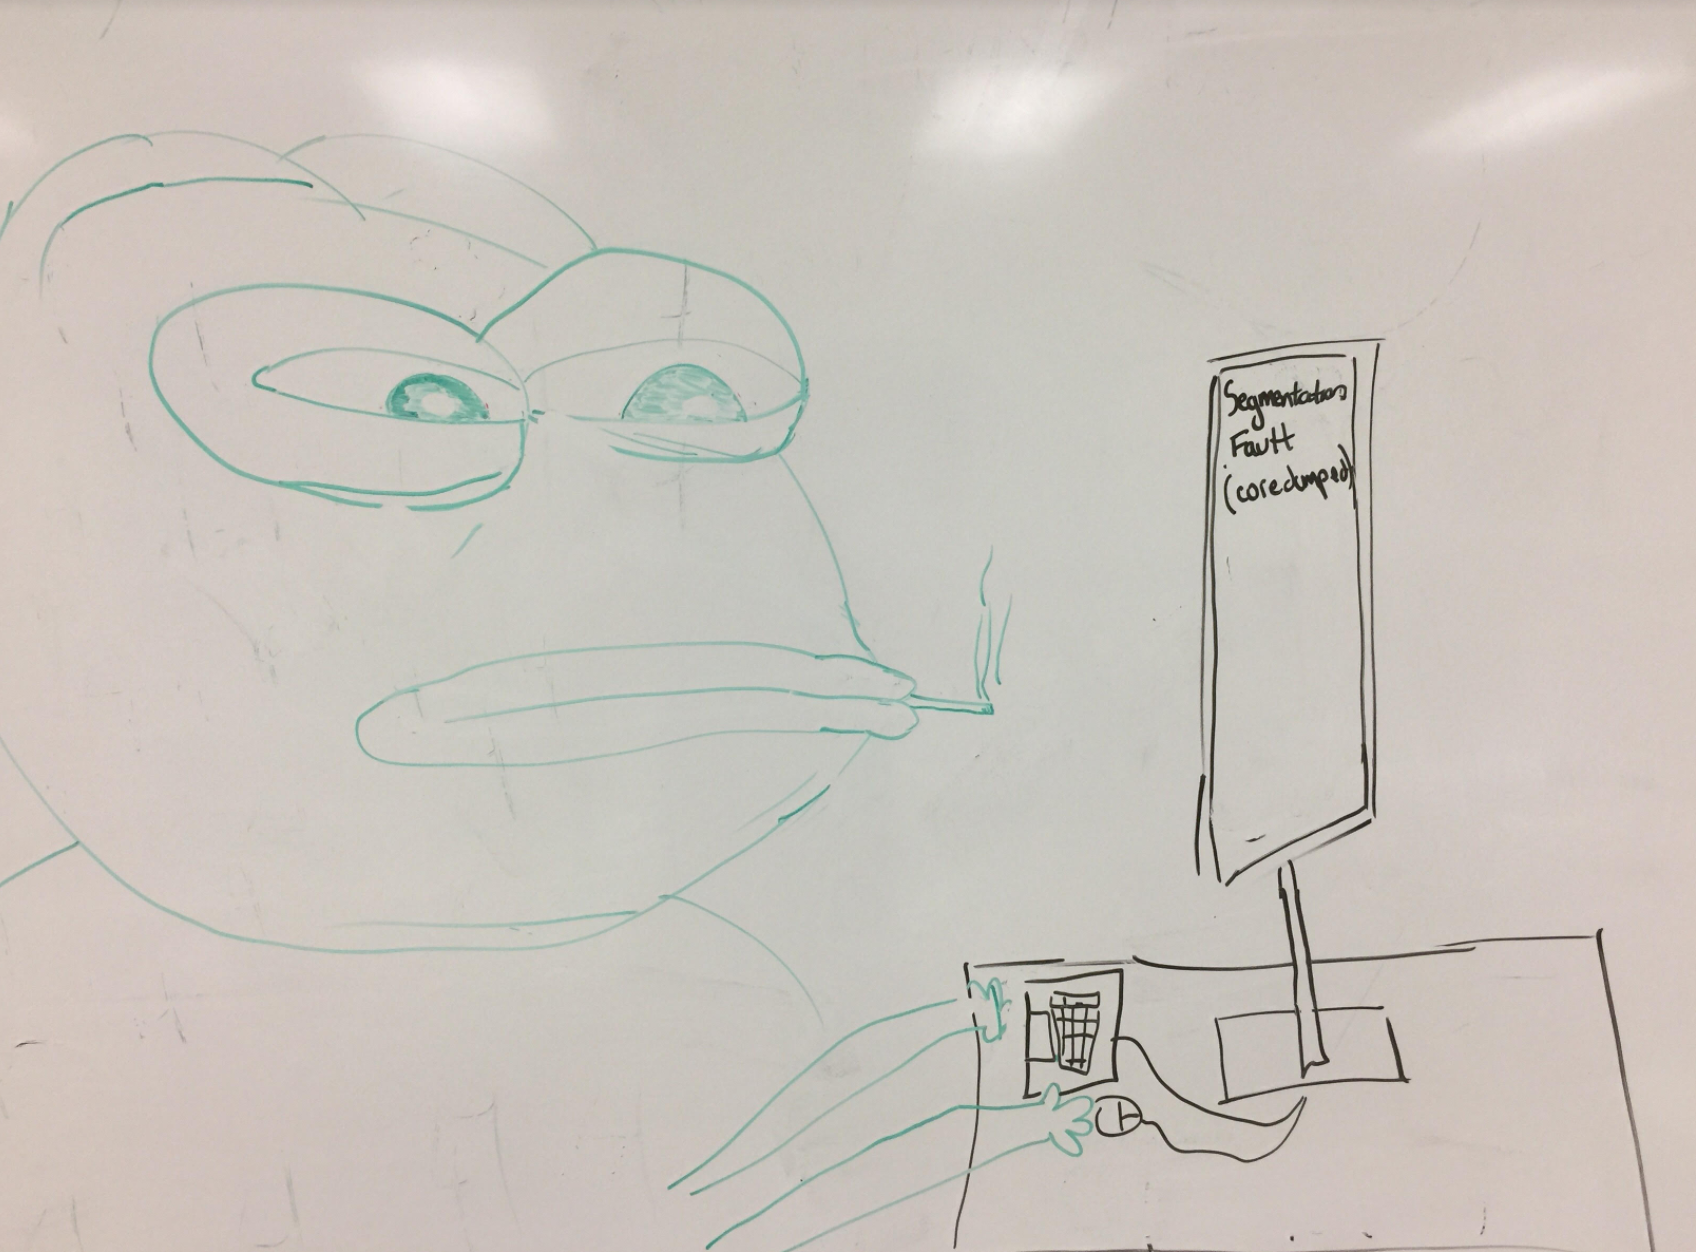 Segmentation
Fault
(core dumped)